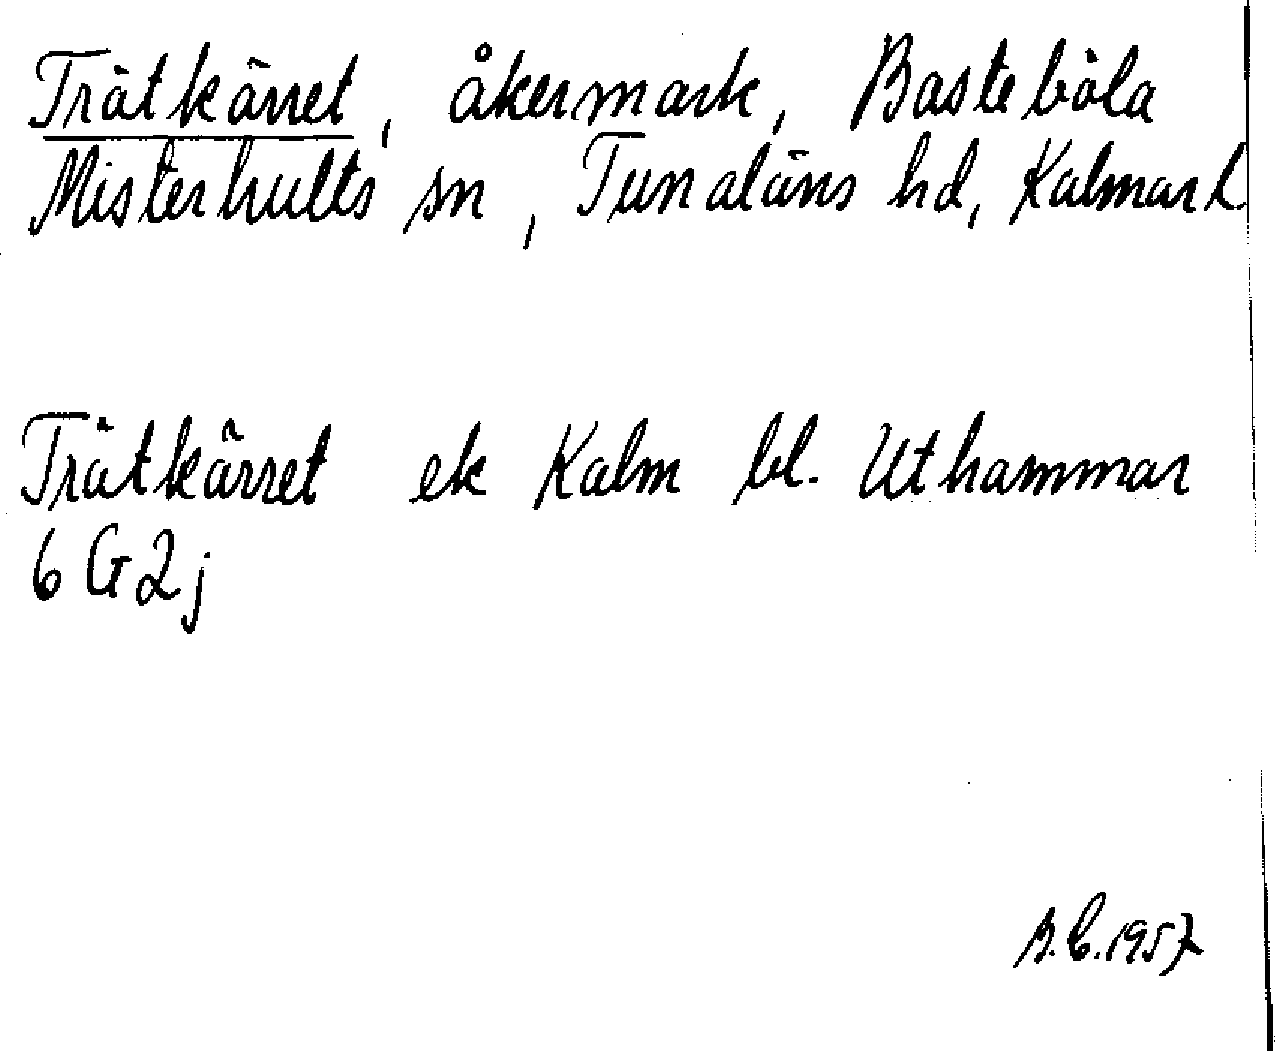 Tråtkärret, åkermark, Basteböla
Misterhults sn, Tunaläns hd, Kalmar L
Tråtkärret ek Kalm bl. Uthammar
6 G 2 j
B.C. 1957